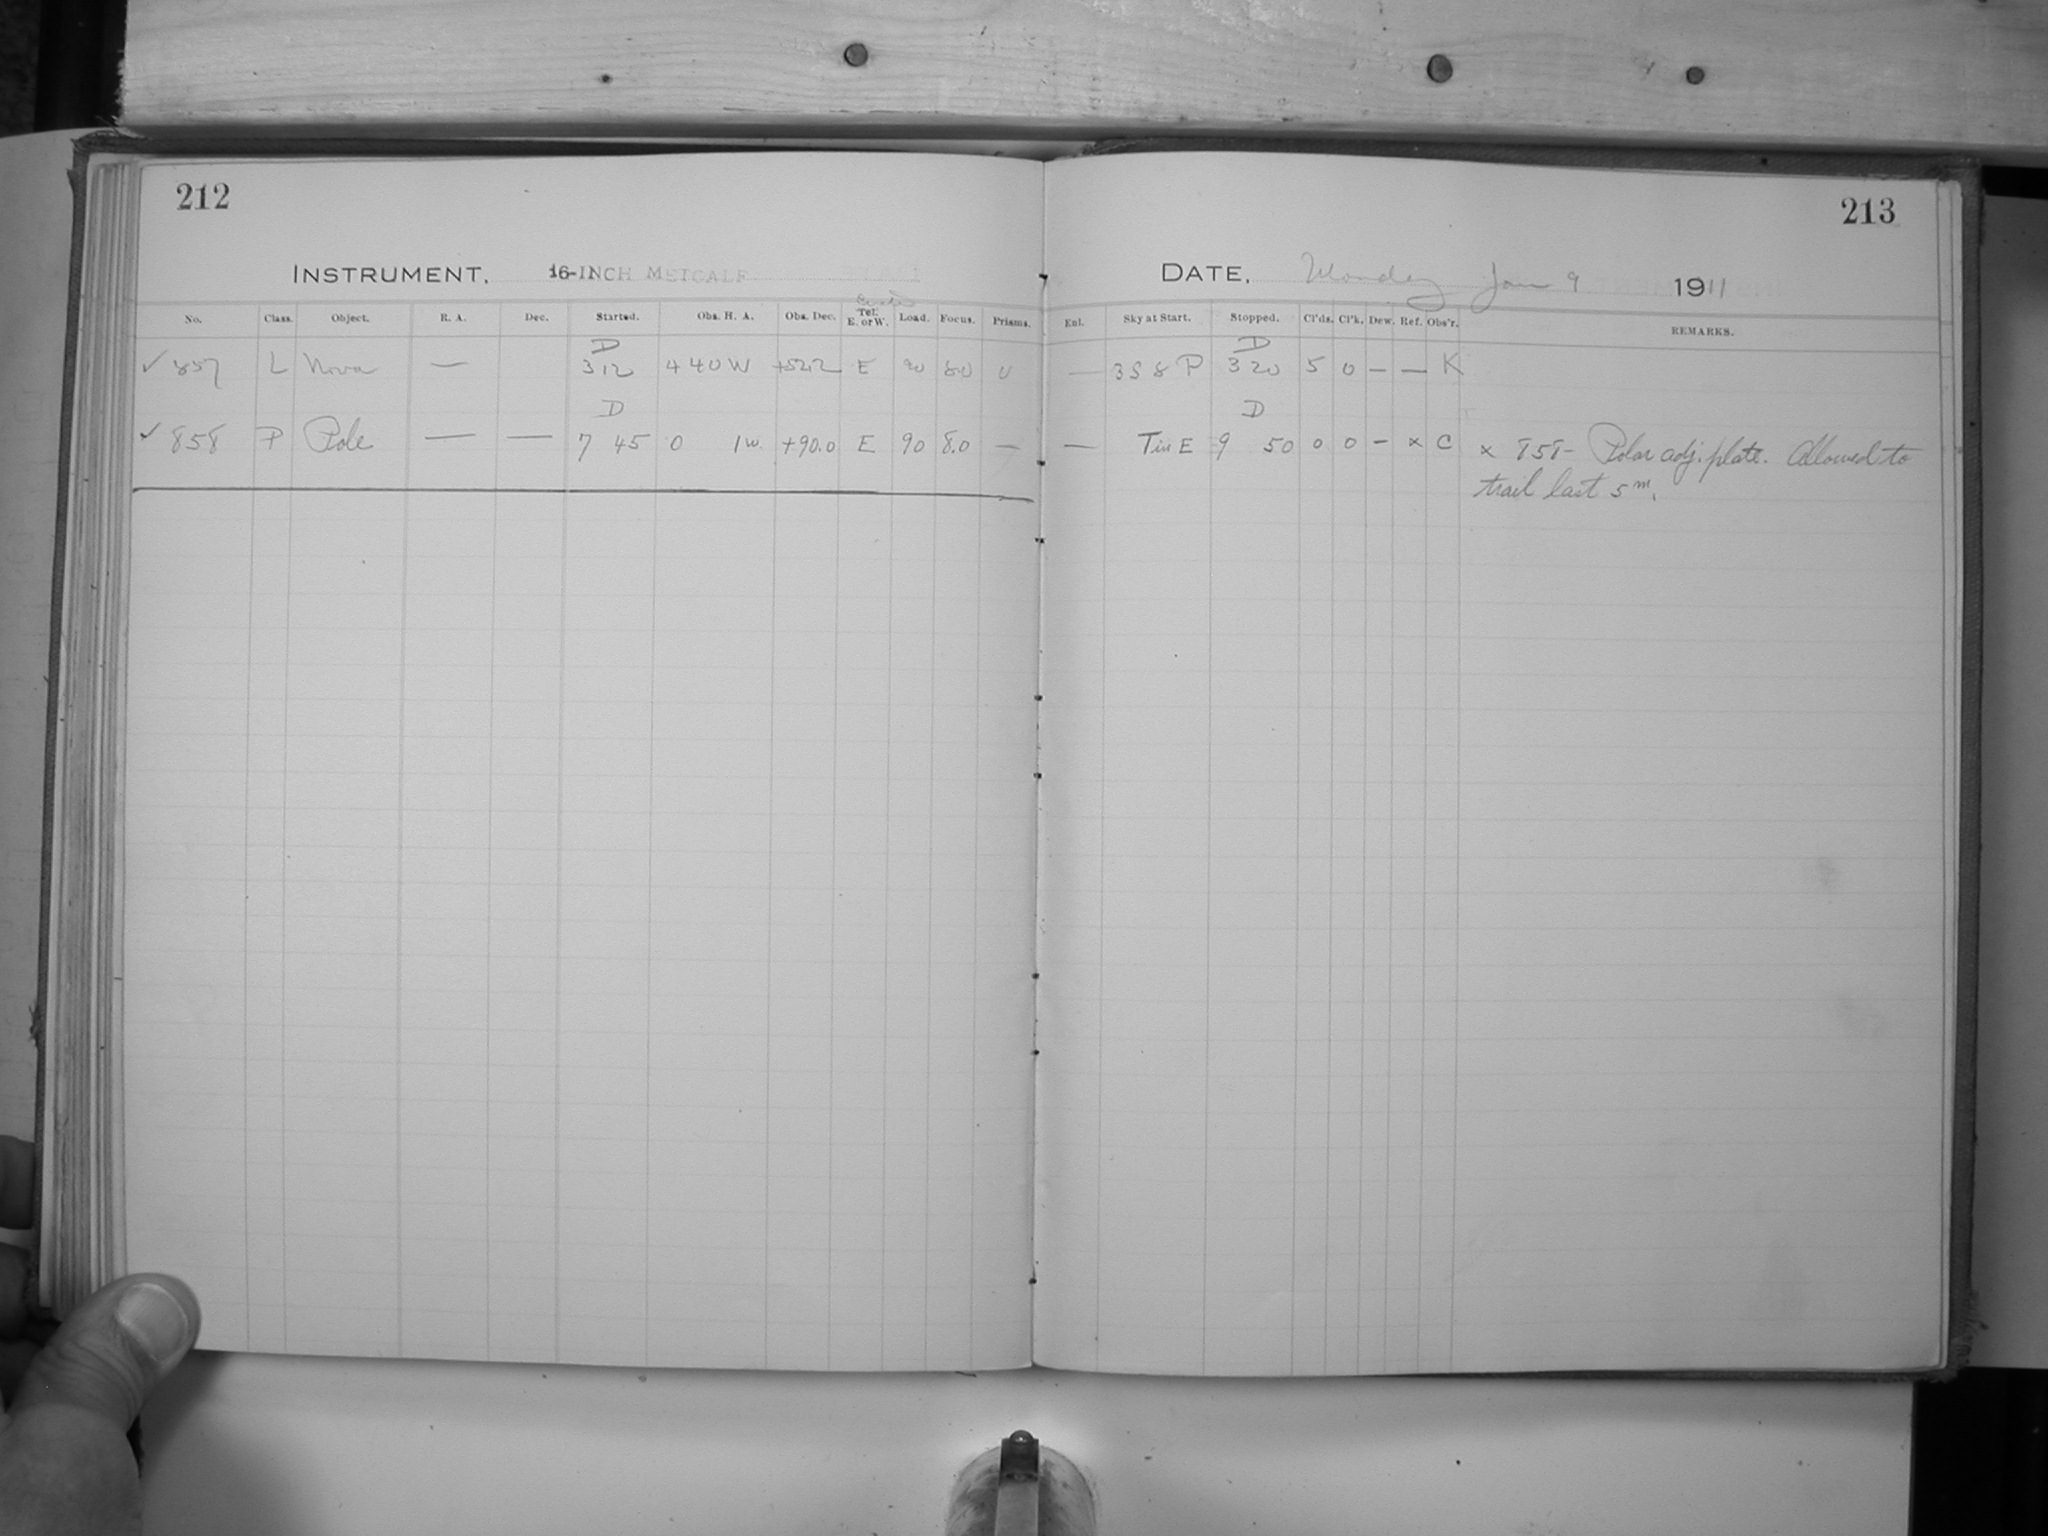 212
213
INSTRUMENT, 16-INCH METCALF
DATE, Monday Jan 9 1911
No. Class. Object. R. A. Dec. Started. Obs. H. A. Obs. Dec. Tel. E. or W. Load. Focus. Prisms. Enl. Sky at Start. Stopped. Cl'ds. Cl'k. Dew. Ref. Obs'r. REMARKS.
D D
✓ 857 L Nova — 3 12 4 40 W +52.2 E 90 8.0 0 — 358 P 3 20 5 0 — — K
D D
✓ 858 P Pole — — 7 45 0 1 w. +90.0 E 90 8.0 — — T in E 9 50 0 0 – x C x 858- Polar adj. plate. Allowed to
trail last 5 m.